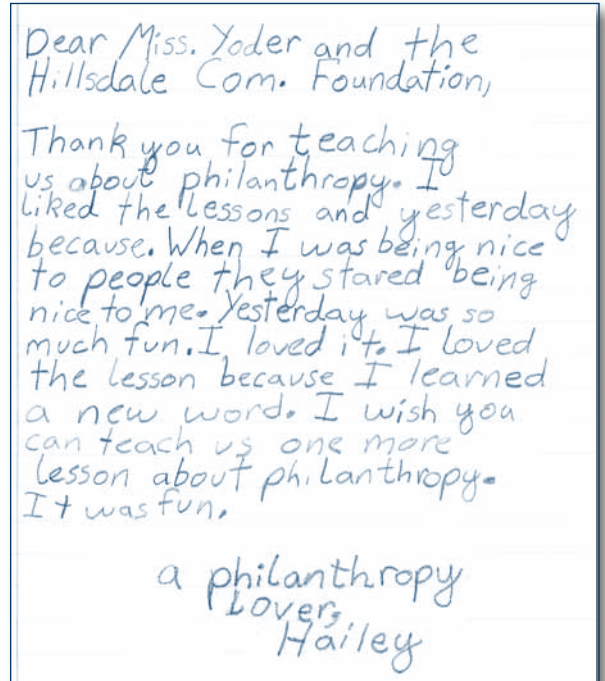 Dear Miss. Yoder and the
Hillsdale Com. Foundation,
Thank you for teaching
us about philanthropy. I
liked the lessons and yesterday
because. When I was being nice
to people they stared being
nice to me. Yesterday was so
much fun. I loved it. I loved
the lesson because I learned
a new word. I wish you
can teach us one more
lesson about philanthropy.
It was fun.
a philanthropy
Lover,
Hailey